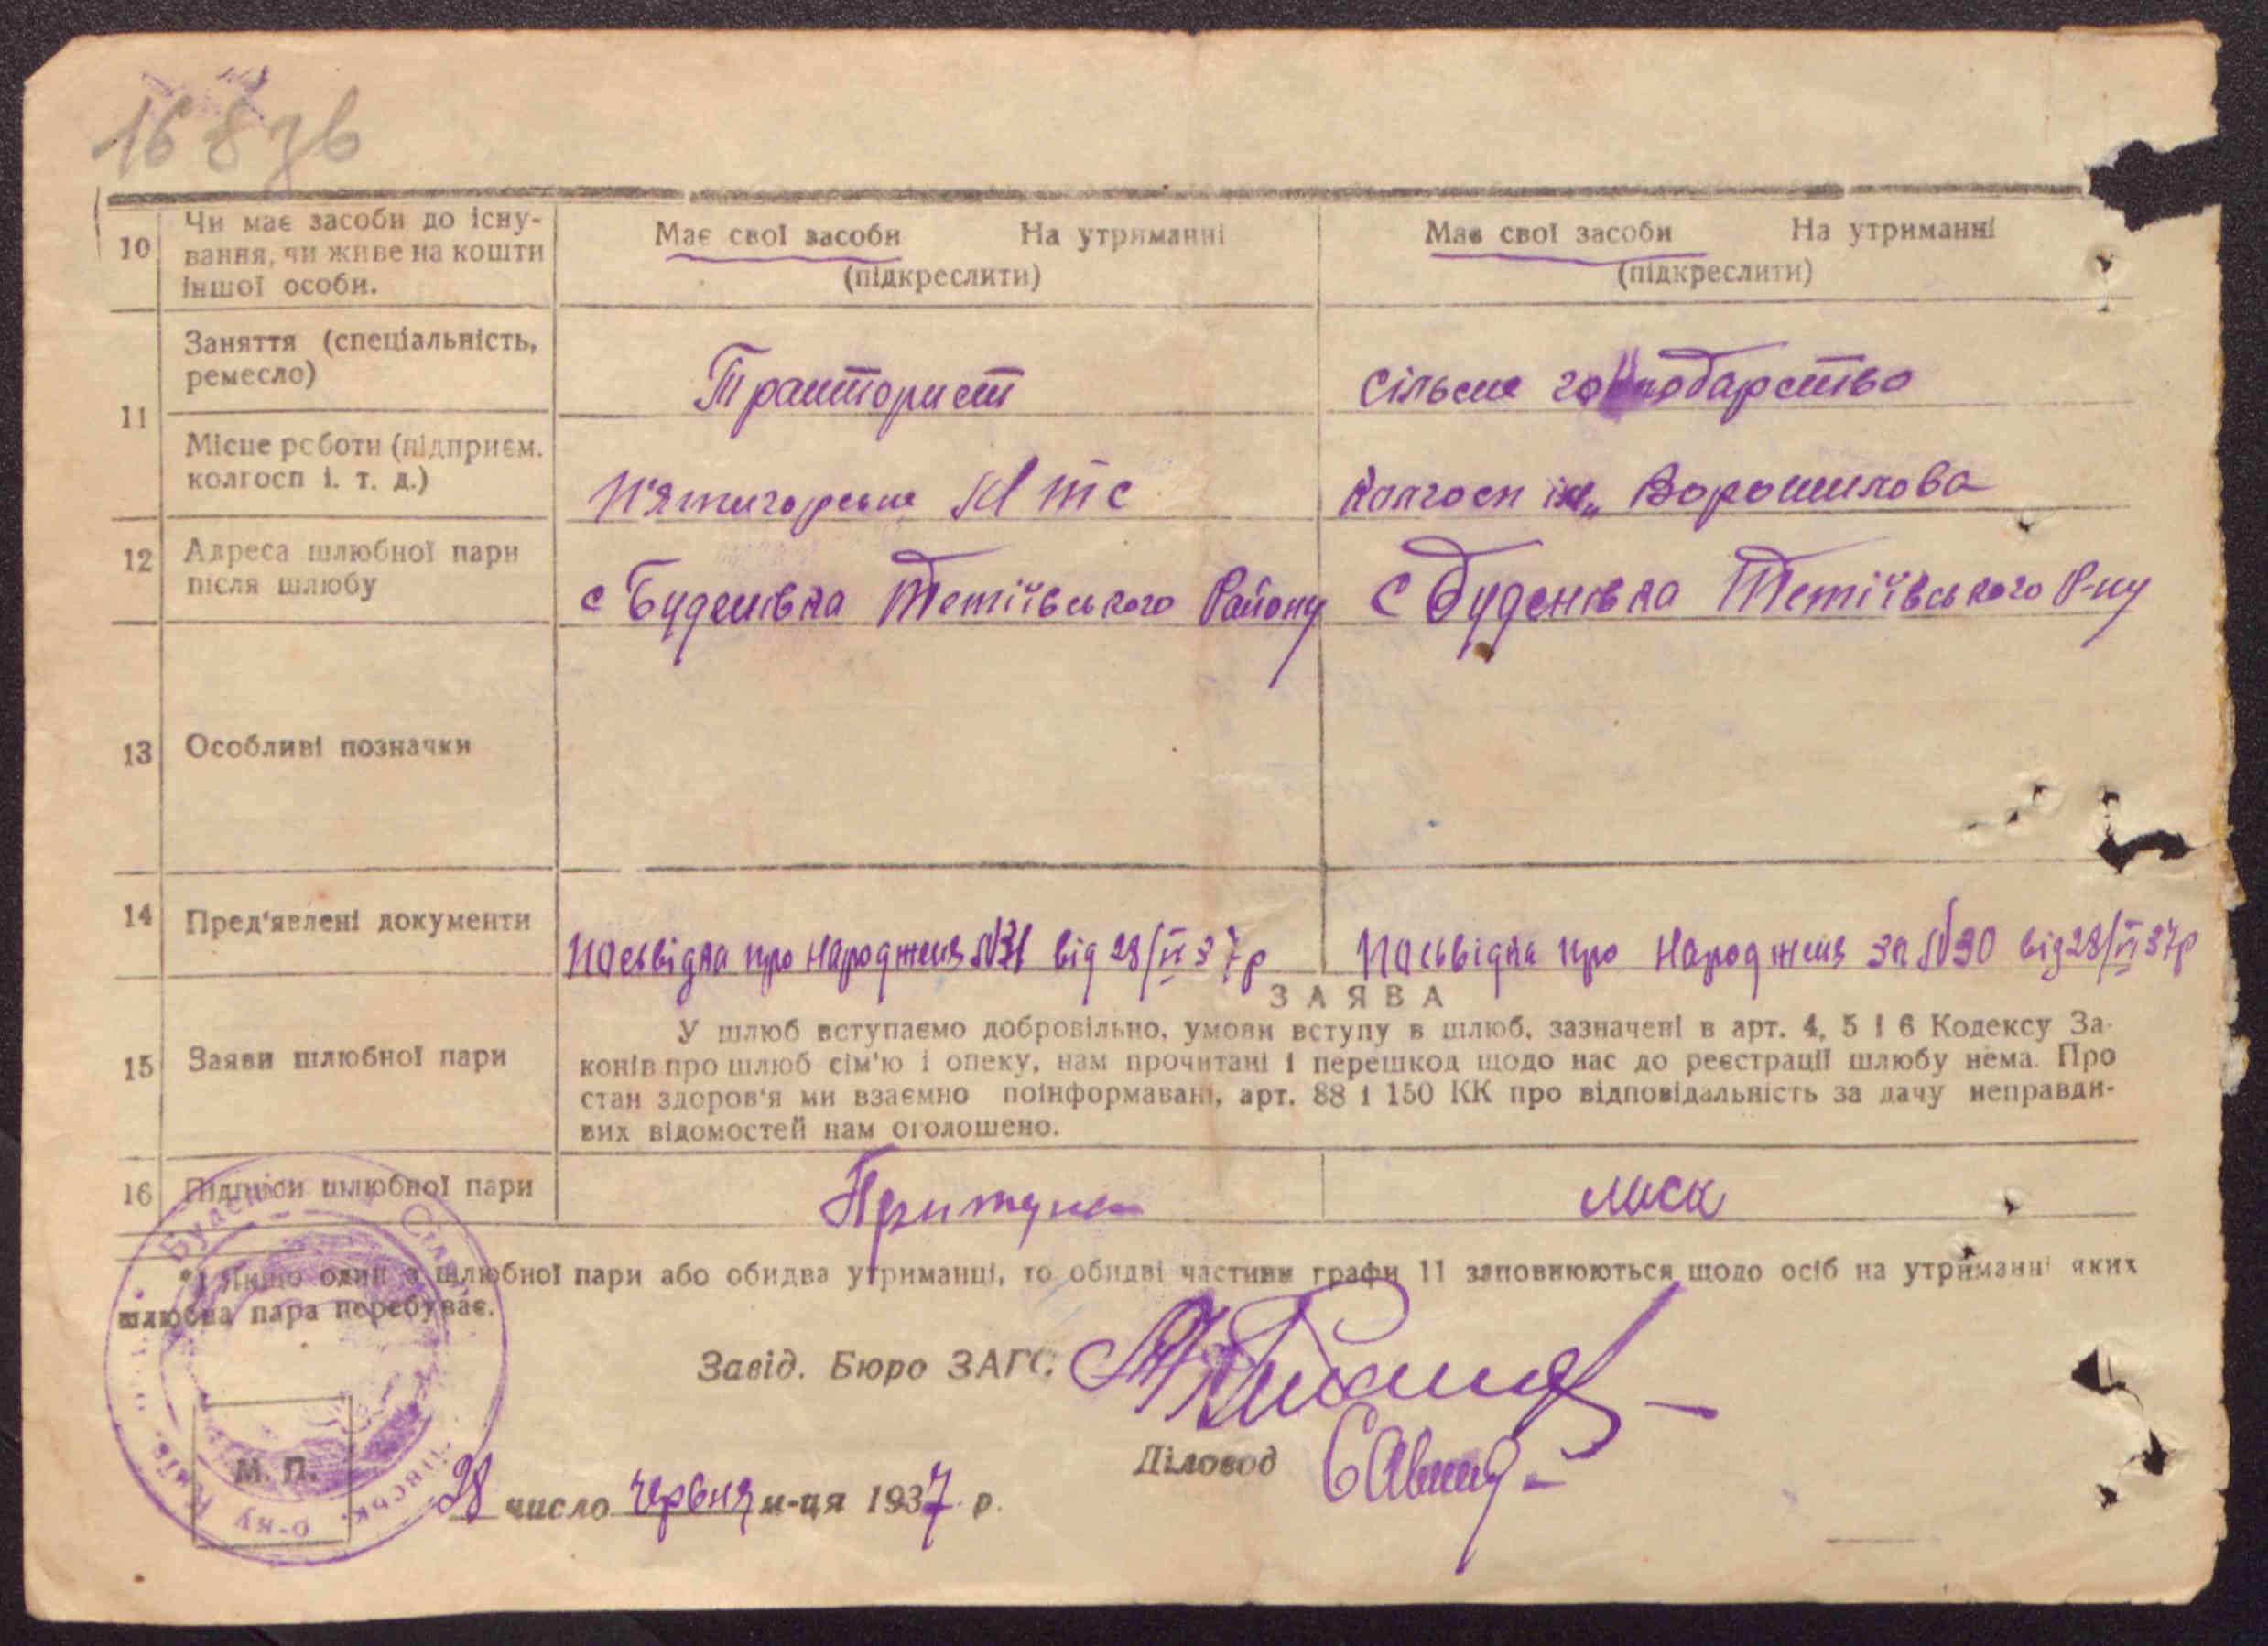 168 зв
10 Чи має засоби до існу-
вання, чи живе на кошти
іншої особи.
Має свої засоби На утриманні
(підкреслити)
Має свої засоби На утриманні
(підкреслити)
11 Заняття (спеціальність,
ремесло)
Тракторист
сільске господарство
Місце роботи (підприєм.
колгосп і. т. д.)
П'ятигорська МТС
Колгосп ім„ Ворошилова
12 Адреса шлюбної пари
після шлюбу
с Буденівка Тетіївського Району
с Буденівка Тетіївського Р-ну
13 Особливі позначки
14 Пред'явлені документи
Посвідка про народженя №31 від 28/VI 37р
Посьвідка про народженя за №30 від 28/VI 37р
15 Заяви шлюбної пари
ЗАЯВА
У шлюб вступаємо добровільно, умови вступу в шлюб, зазначені в арт. 4, 5 і 6 Кодексу За-
конів про шлюб сім'ю і опеку, нам прочитані і перешкод щодо нас до реєстрації шлюбу нема. Про
стан здоров'я ми взаємно поінформавані, арт. 88 і 150 КК про відповідальність за дачу неправди-
вих відомостей нам оголошено.
16 Підписи шлюбної пари
*) Якщо один з шлюбної пари або обидва утриманці, то обидві частини графи 11 заповнюються щодо осіб на утриманні яких
шлюбна пара перебуває.
Завід. Бюро ЗАГС.
Діловод
М. П.
28 число червня м-ця 1937 р.